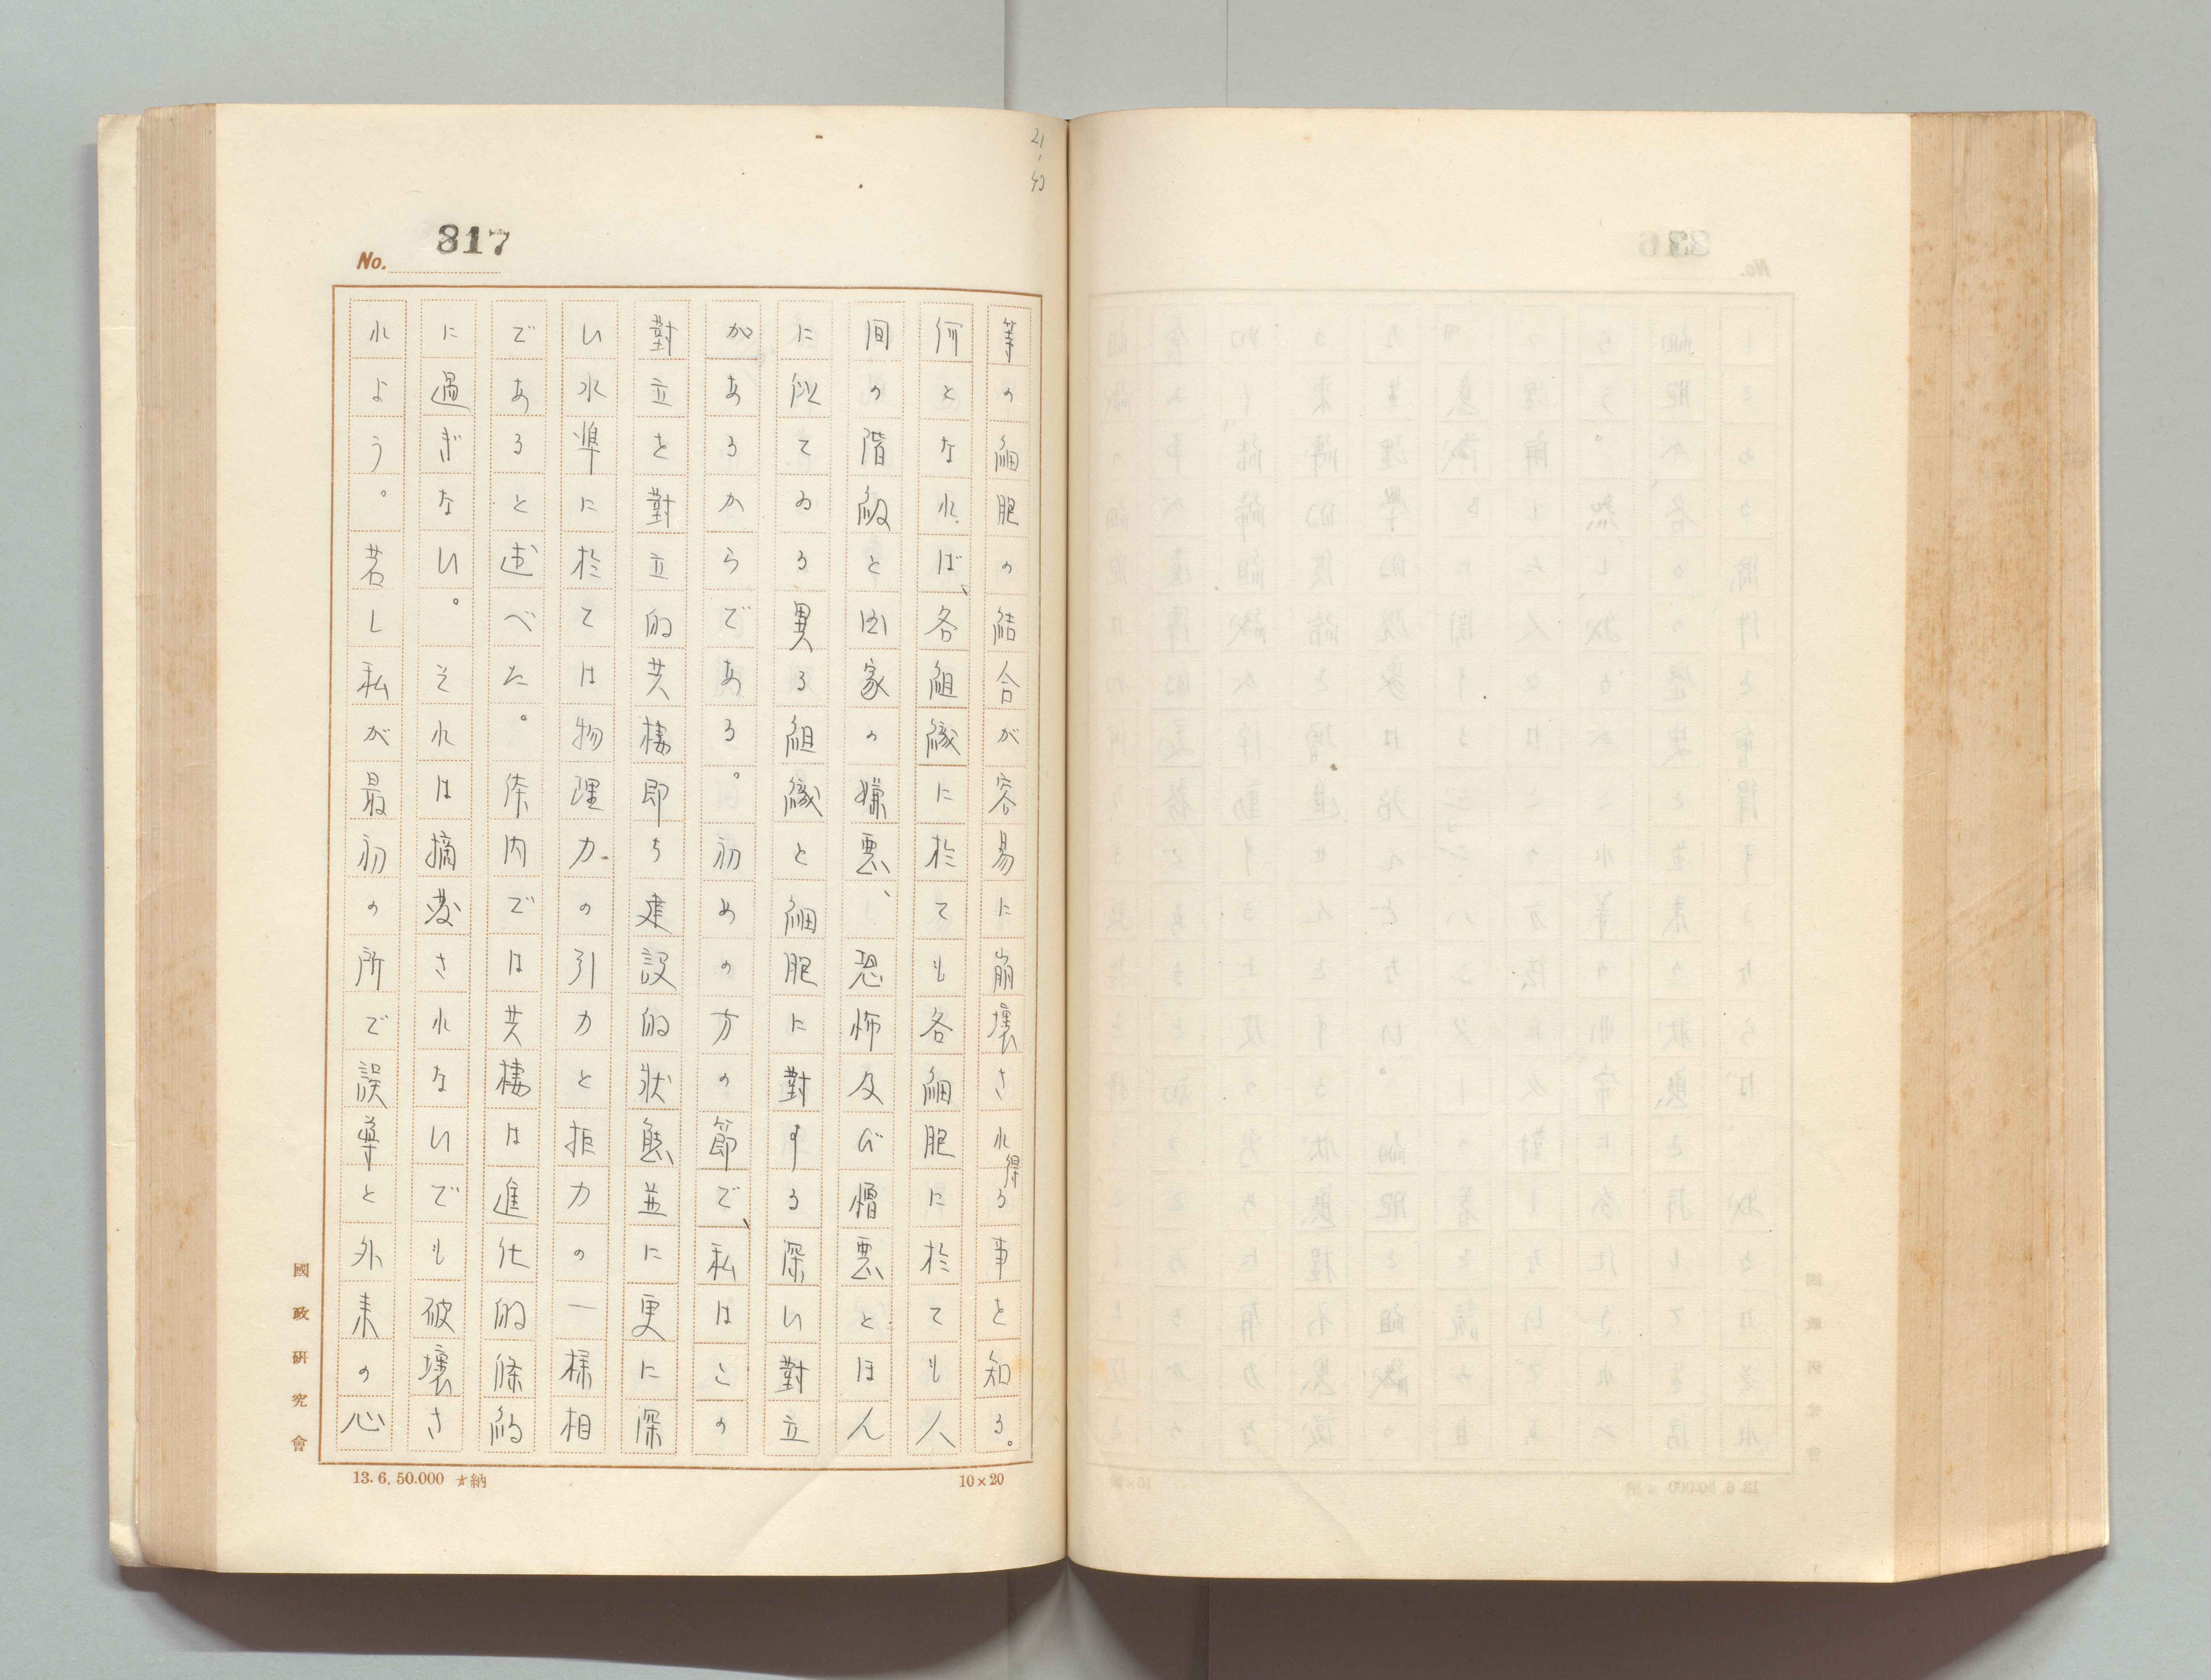 21,
40
No. 317
等の細胞の結合が容易に崩壊され得る事を知る。
何となれば、各組織に於ても各細胞に於ても人
间の階級と国家の嫌悪、恐怖及び憎悪とほん
に似てゐる異る組織と細胞に對する深い對立
があるからである。初めの方の節で、私はこの
對立を對立的共棲即ち建設的状態並に更に深
い水準に於ては物理力の引力と拒力の一様相
であると述べた。体内では共棲は進化的條約
に過ぎない。それは摘發されないでも破壊さ
れよう。若し私が最初の所で誤導と外来の心
國政研究會
13. 6. 50.000 納
10×20